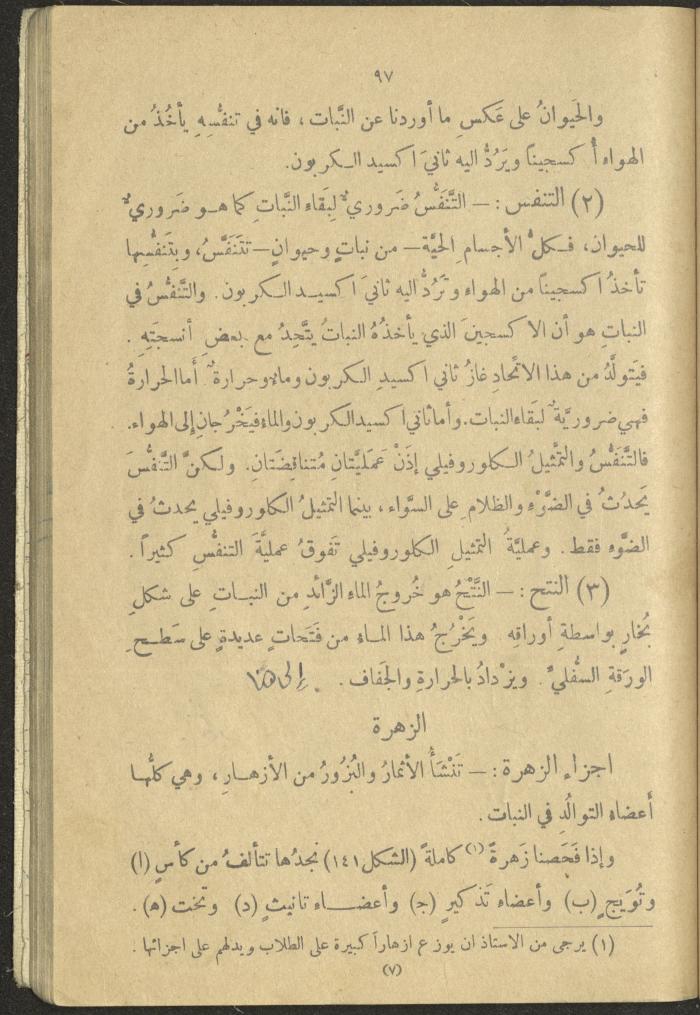 ٩٧
والحَيوانُ على عَكسِ ما أوردنا عن النَّبات ، فانه في تنفُّسِهِ يأخُذُ من
الهواء أُكسجيناً ويَرُدُّ اليه ثانيَ اكسيد الكربون.
(٢) التنفس : — التَّنَفُّسُ ضَروريٌّ لِبَقاء النَّباتِ كما هو ضَروريٌّ
للحيوان ، فكلُّ الأجسامِ الحيَّة — من نباتٍ وحيوانٍ — تتَنَفَّسُ ، وبِتَنفُّسِها
تأخذُ اكسجيناً من الهواء وتَرُدُّ اليه ثانيَ اكسيد الكربون . والتَّنفُّسُ في
النباتِ هو أن الاكسجينَ الذي يأخذُهُ النباتُ يتَّحِدُ مع بعضِ أنسجَتِهِ .
فيَتولَّدُ من هذا الاتّحادِ غازُ ثاني اكسيدِ الكربون وماءٌ وحرارةٌ . أما الحرارةُ
فهي ضروريَّةٌ لبَقاء النبات . وأما ثاني اكسيد الكربون والماء فيَخْرُجانِ إلى الهواء.
فالتَّنَفُّسُ والتَّمثيلُ الكلوروفيلي إذَنْ عَمَليَّتانِ مُتناقِضَتانِ . ولكنَّ التَّنَفُّسَ
يَحدُثُ في الضَّوْءِ والظلامِ على السَّواء ، بينما التمثيلُ الكلوروفيلي يحدثُ في
الضَّوءِ فقط . وعمليَّةُ التمثيلِ الكلوروفيلي تَفوقُ عمليَّةَ التنفُّسِ كثيراً .
(٣) النتح : — النَّتْحُ هو خُروجُ الماء الزَّائدِ من النبـاتِ على شكلِ
بُخارٍ بواسطةِ أوراقِه . ويَخْرُجُ هذا الماء من فَتَحاتٍ عديدةٍ على سَطحِ
الورَقةِ السُّفليِّ . ويزْدادُ بالحرارةِ والجَفاف . إلى هنا
الزهرة
اجزاء الزهرة : — تَنْشَأُ الأثمارُ والبُزُورُ من الأزهـارِ ، وهي كلُّها
أعضاء التوالُدِ في النبات .
وإذا فَحَصنا زَهرةً (١) كاملةً (الشكل ١٤١) نجدُها تتألفُ من كأسٍ (ا)
وتُوَيجٍ (ب) وأعضاء تَذكيرٍ (ج) وأعضـاء تانيثٍ (د) وتخت (ه) .
(١) يرجى من الاستاذ ان يوزع ازهاراً كبيرة على الطلاب ويدلهم على اجزائها .
(٧)